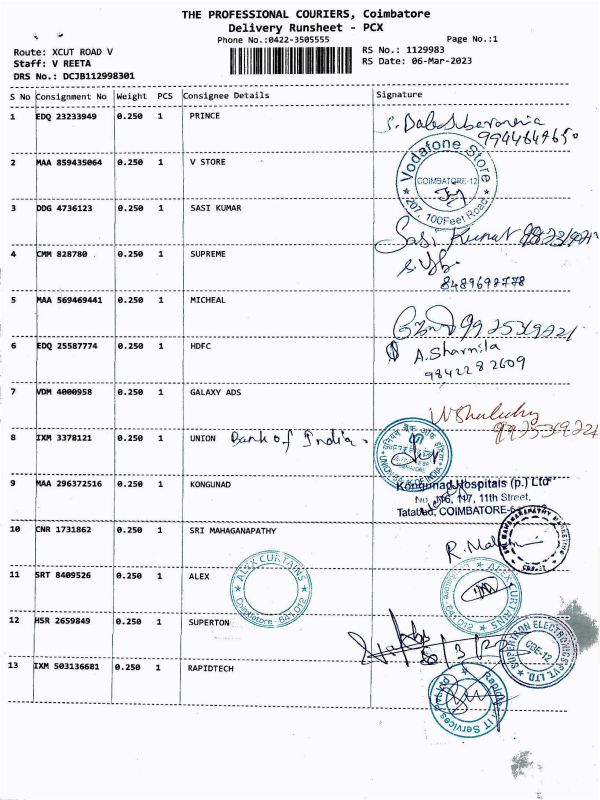 THE PROFESSIONAL COURIERS, Coimbatore
Delivery Runsheet - PCX
Phone No.:0422-3505555
Page No.:1
Route: XCUT ROAD V
RS No.: 1129983
Staff: V REETA
RS Date: 06-Mar-2023
DRS No.: DCJB112998301
S No Consignment No Weight PCS Consignee Details Signature
1 EDQ 23233949 0.250 1 PRINCE
2 MAA 859435064 0.250 1 V STORE
Vodafone Store
COIMBATORE-12
207, 100Feet Road
3 DDG 4736123 0.250 1 SASI KUMAR
Sasi Kumar
4 CMM 828780 0.250 1 SUPREME
8489692778
5 MAA 569469441 0.250 1 MICHEAL
6 EDQ 25587774 0.250 1 HDFC
A. Sharmila
9842282609
7 VDM 4000958 0.250 1 GALAXY ADS
8 IXM 3378121 0.250 1 UNION Bank of India.
UNION BANK OF INDIA
9 MAA 296372516 0.250 1 KONGUNAD
Kongunad Hospitals (p.) Ltd
11th Street,
Tatabad, COIMBATORE-
10 CNR 1731862 0.250 1 SRI MAHAGANAPATHY
SRI MAHAGANAPATHY MARKETING
11 SRT 8409526 0.250 1 ALEX
ALEX CURTAINS
Coimbatore - 641 012
ALEX CURTAINS
Coimbatore - 641 012
12 HSR 2659849 0.250 1 SUPERTON
SUPERTRON ELECTRONICS PVT. LTD.
CBE-12
13 IXM 503136681 0.250 1 RAPIDTECH
IT Services